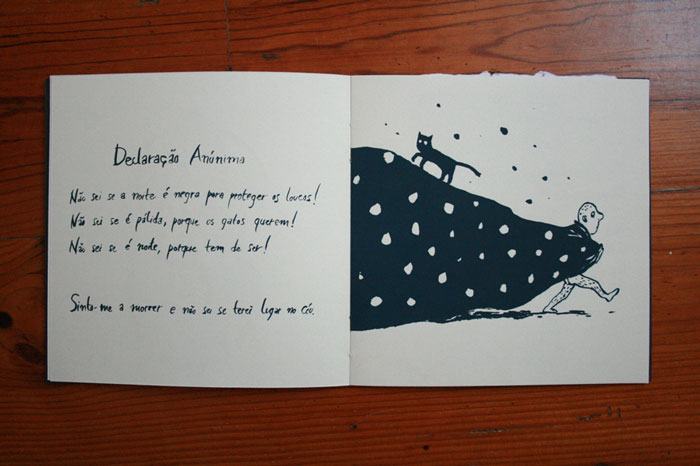 Declaração Anónima
Não sei se a noite é negra para proteger os loucos!
Não sei se é pálida, porque os gatos querem!
Não sei se é noite, porque tem de ser!
Sinto-me a morrer e não sei se terei lugar no Céu.